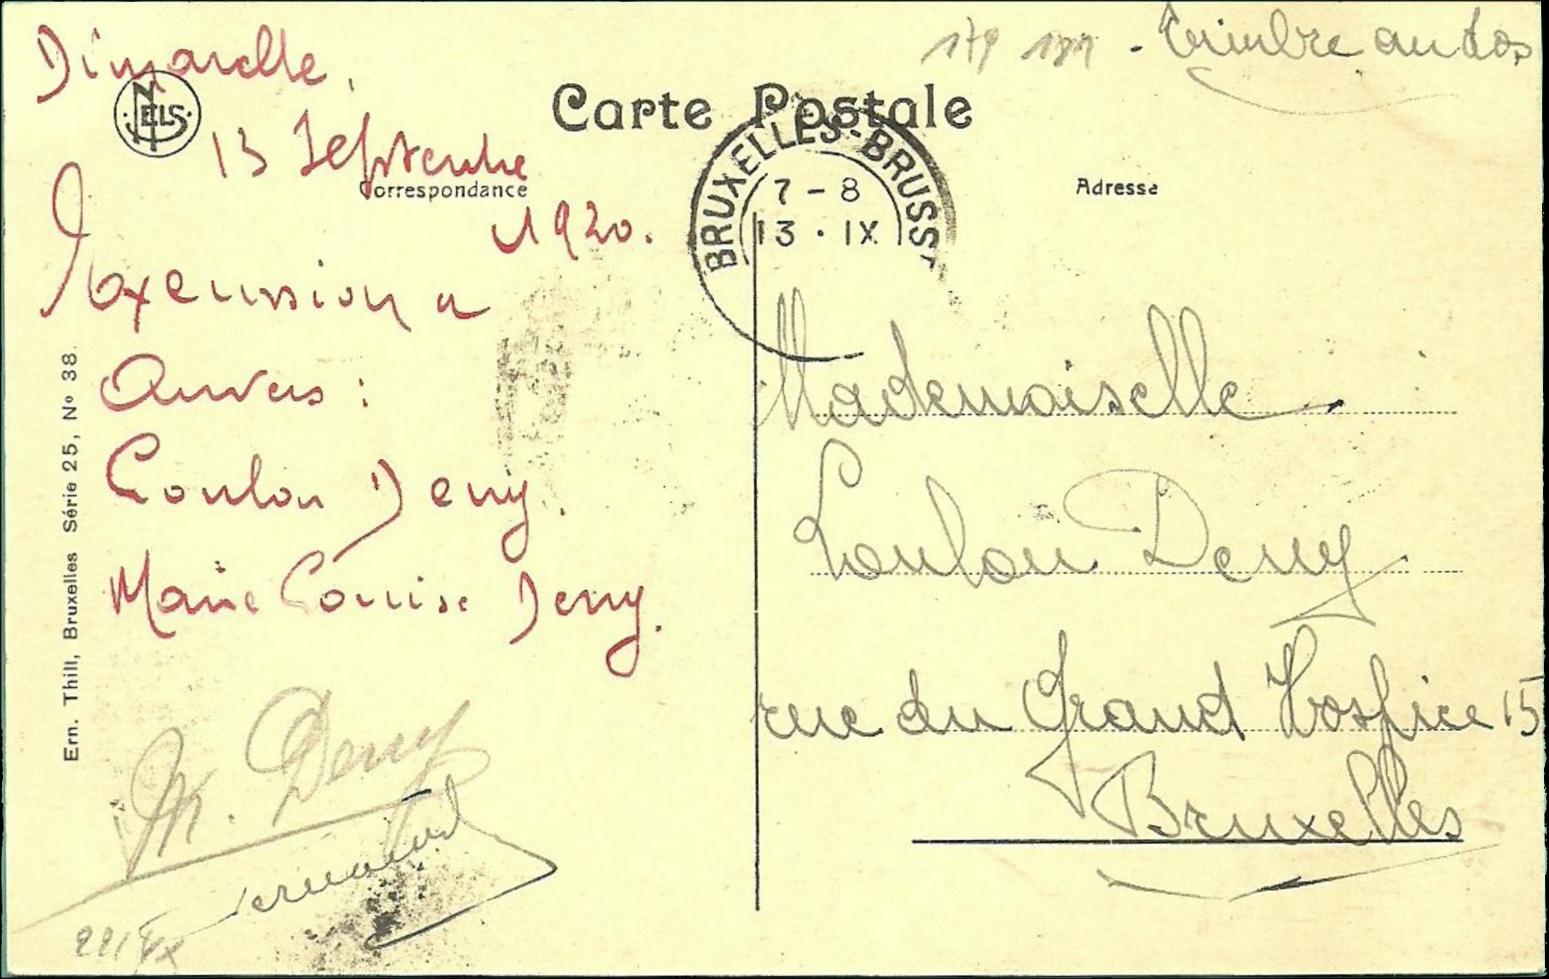 179 181 - Timbre au dos
Dimanche,
NELS
Carte Postale
13 Septembre
Correspondance
Adresse
1920.
BRUXELLES-BRUSS
7-8
13·IX
Excursion a
Anvers :
Loulou Demy.
Marie Louise Demy.
M. Demy
Mademoiselle
Loulou Demy
rue du Grand Hospice 15
Bruxelles
Ern. Thill, Bruxelles Série 25, Nº 38.